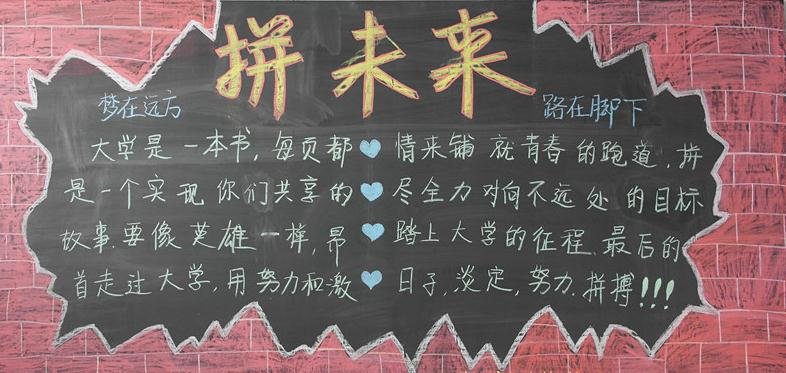 拼未来
梦在远方
路在脚下
大学是一本书,每页都
是一个实现你们共享的
故事.要像英雄一样,昂
首走过大学,用努力和激
情来铺就青春的跑道,拼
尽全力对向不远处的目标
踏上大学的征程.最后的
日子,淡定,努力.拼搏!!!